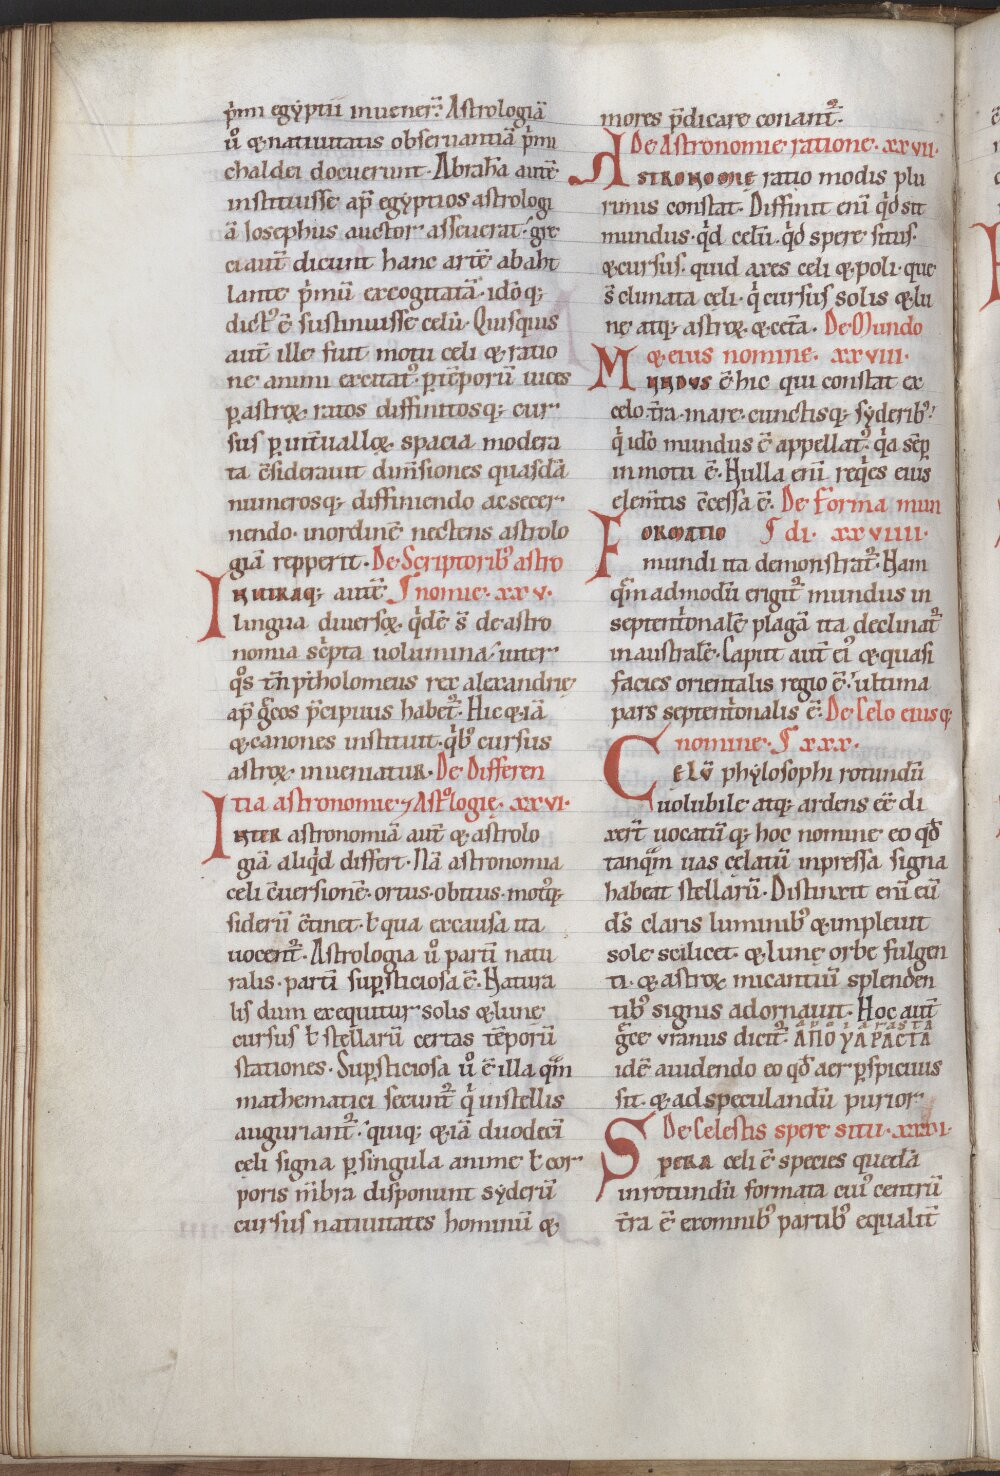 p̄mi egẏptii inueneꝝ̄. Astrologiā
ů ⁊ natiuitatis obseruantiā p̄mi
chaldei docuerunt. Abrahā autē
instituisse ap̄ egẏptios astrologi
ā Iosephus auctor asseuerat. gre
ci aut̄ dicunt hanc artē ab aht
lante p̄mū excogitatā. idoq;
dict᾿ ē sustinuisse celū. Quisquis
aut̄ ille fuit motu celi ⁊ ratio
ne animi excitat᾿. ꝑ tēporū uices
ꝑ astroꝝ ratos diffinitosq; cur
sus ꝑ int̄ualloꝝ spacia modera
ta c̄siderauit dim̄siones quasdā
numerosq; diffiniendo ac secer
nendo. in ordinē nectens astrolo
giā repperit. De Scriptorib᾿ astro
IN UTRAQ; autē nomie. xxv.
lingua diuersoꝝ q̇dē s̄ de astro
nomia sc̄pta uolumina. inter
q̊s tn̄ ptholomeus rex alexandrię
ap̄ grecos p̄cipuus habet᷑. Hic ⁊ iā
⁊ canones instituit. q̇b᾿ cursus
astroꝝ inueniatur. De Differen
tia astronomie ⁊ Astrologię. xxvi.
INTER astronomiā aut̄ ⁊ astrolo
giā aliq̇d differt. Nā astronomia
celi c̄uersionē. ortus. obitus. motusq;
siderū c̄tinet. ł qua ex causa ita
uocent᷑. Astrologia ů partī natu
ralis. partī suꝑsticiosa ē. Natura
lis dum exequitur solis ⁊ lune
cursus ł stellarū certas tēporū
stationes. Suꝑsticiosa ů ē illa qm̄
mathematici secunt᷑ q̇ in stellis
auguriant᷑. quiq; ⁊iā duodeci
cęli signa ꝑ singula anime ł cor
poris mēbra disponunt sẏderū
cursus natiuitates hominū ⁊
mores p̄dicare conant᷑.
De Astronomie ratione. xxvii.
ASTRONOMIE ratio modis plu
rimis constat. Diffinit enī q̇d sit
mundus. q̇d celū. q̇d spere situs.
⁊ cursus. quid axes celi ⁊ poli. que
s̄ climata cęli. q̇ cursus solis ⁊ lu
nę atq; astroꝝ ⁊ cetā. De Mundo
⁊ eius nomine. xxviii.
MUNDUS ē hic qui constat ex
celo. tr̄a. mare. cunctisq; sẏderib᾿.
q̇ idō mundus ē appellat᾿. q̇a sēꝑ
in motu ē. Nulla enī req̇es eius
elem̄tis c̄cessa ē. De Forma mun
FORMATIO di. xxviiii.
mundi ita demonstrat᷑. Nam
qm̄admodū erigit᷑ mundus in
septentrionalē plagā ita declinat᷑
in australē. Caput aut̄ ei᾿ ⁊ quasi
facies orientalis regio ē. ultima
pars septentrionalis ē. De Celo eiusq;
nomine. xxx.
CĘLŪ phẏlosophi rotundū
uolubile atq; ardens eē di
xert̄ uocatū q; hoc nomine eo qđ
tanqm̄ uas cęlatū inpressa signa
habeat stellarū. Distinxit enī eū
ds̄ claris luminib᾿ ⁊ impleuit
sole scilicet. ⁊ lunę orbe fulgen
ti. ⁊ astroꝝ micantiū splenden
tib᾿ signis adornauit. Hoc aut̄
grece uranus dicit᷑. ΑΠΟΥΑΡΑCΤΑ
idē auidendo eo qđ aer ꝑspicuus
sit. ⁊ ad speculandū purior
De Celestis spere situ. xxxi.
SPERA celi ē species quedā
in rotundū formata cui᾿ centrū
tr̄a ē ex omnib᾿ partib᾿ equalit̄